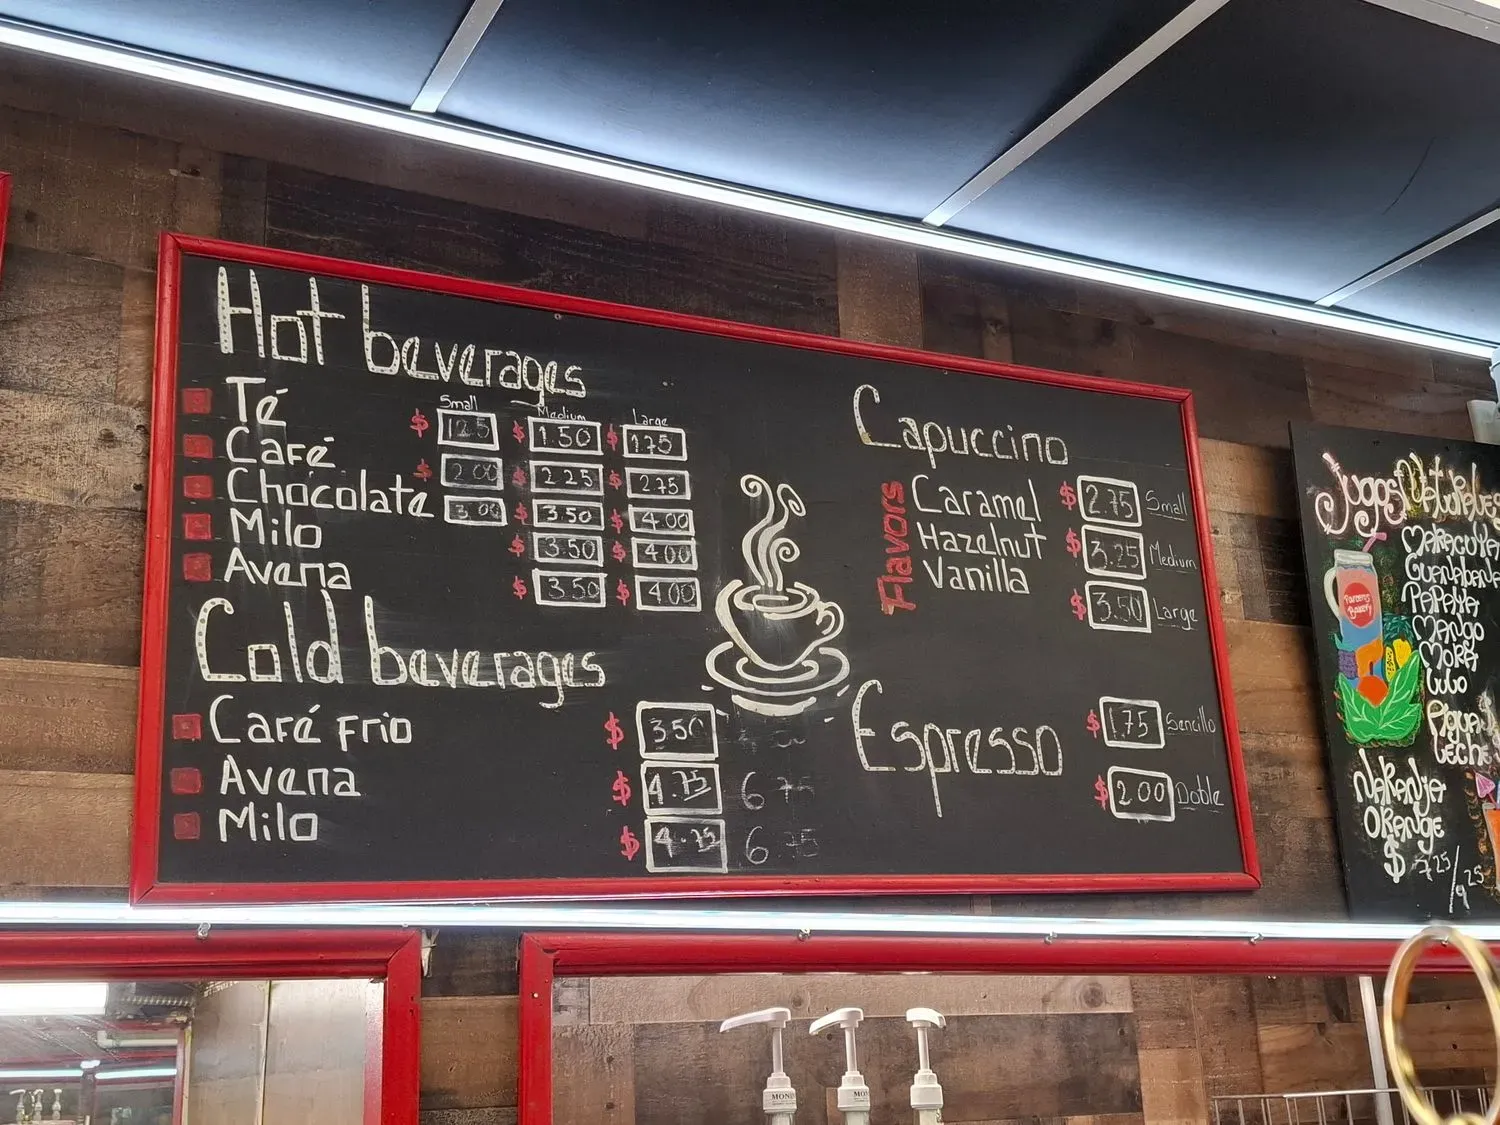 Hot beverages
Small Medium Large
Té $ 1.25 $ 1.50 $ 1.75
Café $ 2.00 $ 2.25 $ 2.75
Chocolate 3.00 $ 3.50 $ 4.00
Milo $ 3.50 $ 4.00
Avena $ 3.50 $ 4.00
Cold beverages
Café Frio $ 3.50
Avena $ 4.75 6.75
Milo $ 4.75 6.75
Capuccino
Flavors
Caramel $ 2.75 Small
Hazelnut $ 3.25 Medium
Vanilla $ 3.50 Large
Espresso
$ 1.75 Sencillo
$ 2.00 Doble
Jugos Naturales
MARACUYA
GUANABANA
PAPAYA
MANGO
MORA
Lulo
LECHE
NARANJA
ORANGE
$ 7.25/9.25
Bakery
MONIN
MONIN